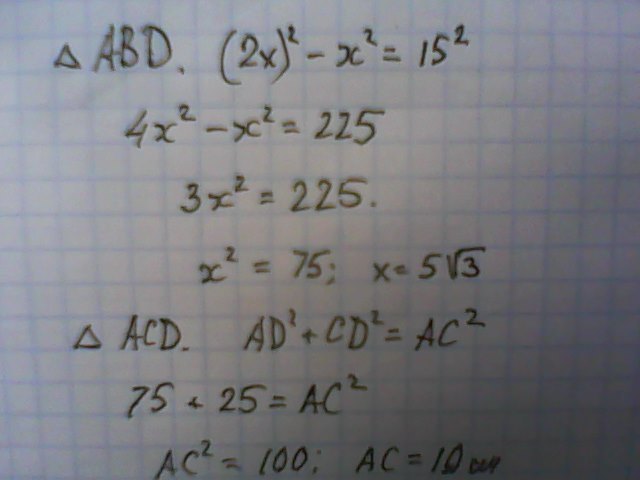 △ ABD. (2x)² - x² = 15²
4x² - x² = 225
3x² = 225.
x² = 75; x = 5√3
△ ACD. AD² + CD² = AC²
75 + 25 = AC²
AC² = 100; AC = 10 см